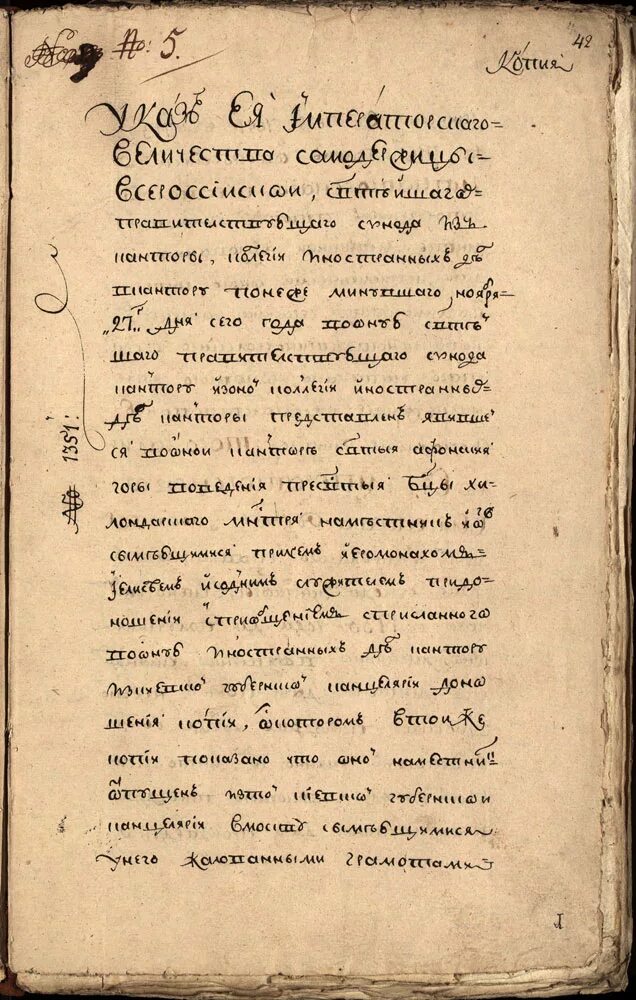 No: 5.
42
Копия
Указъ Ея Iмператорскаго=
величества самодержицы=
всероссiискои, святѣишаго=
правителствующаго сvнода изъ
канторы, коллегiи иностранныхъ дѣлъ
в кантору понеже минувшаго ноября=
„27„ дня сего года во оную святѣи
шаго правителствующаго сvнода
кантору изоной коллегiи иностранныхъ=
дѣлъ канторы представленъ явивше
ся во оной канторѣ святыя афонския
горы введенiя пресвятыя бцы хи=
лондарскаго мнтря намѣстникъ
сымѣющимися при немъ иеромонахомъ=
и соднимъ служителемъ придо=
ношенiи сприобщенiемъ с присланного
во оную иностранныхъ дѣлъ кантору
ис киевской губернской канцелярiи доно
шенiя копiи, в котором в тои же
копiи показано что оной намѣстникъ
отпущенъ ис той киевской губернскои
канцелярiи в москву сымѣющимися
у него жалованными грамотами
№ 1351:
1